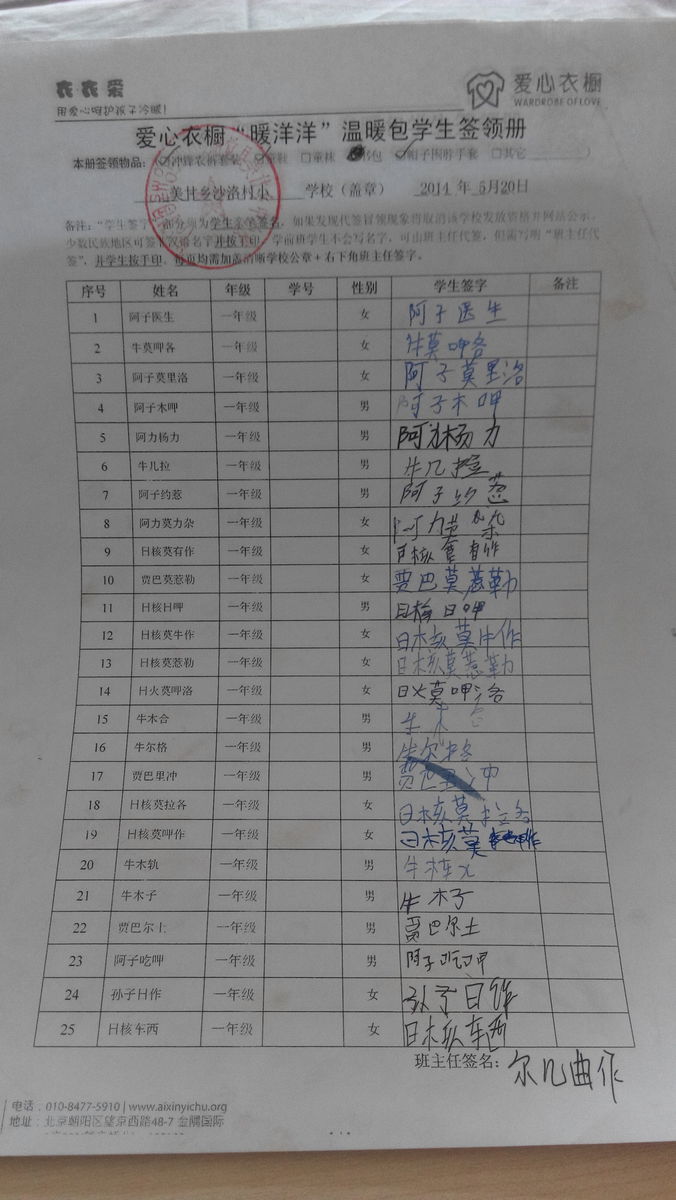 衣衣爱
用爱心呵护孩子冷暖!
爱心衣橱
WARDROBE OF LOVE
爱心衣橱“暖洋洋”温暖包学生签领册
本册签领物品: 冲锋衣裤套装 童鞋 □童袜 书包 帽子围脖手套 □其它
美甘乡沙洛村小 学校(盖章) 2014 年 5月20日
备注:“学生签字”部分须为学生亲笔签名,如果发现代签冒领现象将取消该学校发放资格并网站公示,
少数民族地区可签下汉语名字并按手印,学前班学生不会写名字,可由班主任代签,但需写明“班主任代
签”,并学生按手印。每页均需加盖清晰学校公章+右下角班主任签字。
序号 姓名 年级 学号 性别 学生签字 备注
1 阿子医生 一年级 女 阿子医生
2 牛莫呷各 一年级 女 牛莫呷各
3 阿子莫里洛 一年级 女 阿子莫里洛
4 阿子木呷 一年级 男 阿子木呷
5 阿力杨力 一年级 男 阿力杨力
6 牛几拉 一年级 男 牛几拉
7 阿子约惹 一年级 男 阿子约惹
8 阿力莫力杂 一年级 女 阿力莫
9 日核莫有作 一年级 女 日核莫有作
10 贾巴莫惹勒 一年级 女 贾巴莫惹勒
11 日核日呷 一年级 男 日核日呷
12 日核莫牛作 一年级 女 日核莫牛作
13 日核莫惹勒 一年级 女 日核莫惹勒
14 日火莫呷洛 一年级 女 日火莫呷洛
15 牛木合 一年级 男 牛木合
16 牛尔格 一年级 男 牛尔格
17 贾巴里冲 一年级 男 贾巴里冲
18 日核莫拉各 一年级 女 日核莫拉各
19 日核莫呷作 一年级 女 日核莫呷作
20 牛木轨 一年级 男 牛
21 牛木子 一年级 男 牛木子
22 贾巴尔土 一年级 男 贾巴尔土
23 阿子吃呷 一年级 男 阿子吃呷
24 孙子日作 一年级 女 孙子日作
25 日核东西 一年级 女 日核东西
班主任签名: 尔几曲作
电话:010-8477-5910 | www.aixinyichu.org
地址:北京朝阳区望京西路48-7 金隅国际